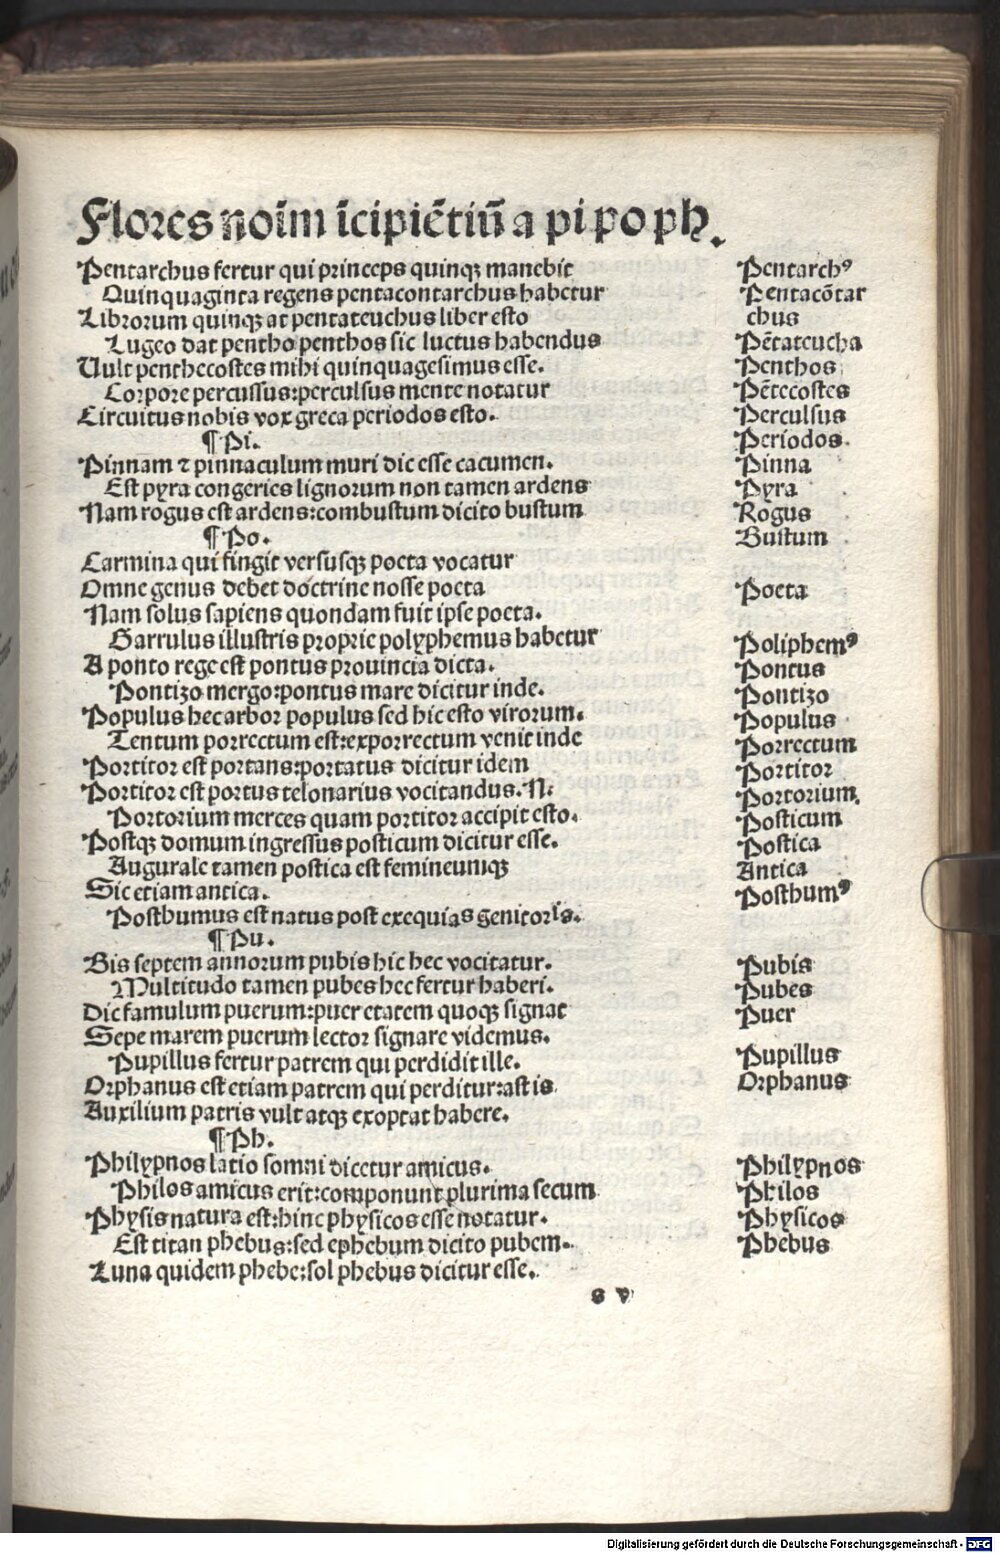 Flores noīm īcipiētiū a pi po ph.
Pentarchus fertur qui princeps quinqꝫ manebit
Quinquaginta regens pentacontarchus habetur
Librorum quinqꝫ at pentateuchus liber esto
Lugeo dat pentho penthos sic luctus habendus
Uult penthecostes mihi quinquagesimus esse.
Corpore percussus:perculsus mente notatur
Circuitus nobis vox greca periodos esto.
¶Pi.
Pinnam ⁊ pinnaculum muri dic esse cacumen.
Est pyra congeries lignorum non tamen ardens
Nam rogus est ardens:combustum dicito bustum
¶Po.
Carmina qui fingit versusqꝫ poeta vocatur
Omne genus debet doctrine nosse poeta
Nam solus sapiens quondam fuit ipse poeta.
Garrulus illustris proprie polyphemus habetur
A ponto rege est pontus prouincia dicta.
Pontizo mergo:pontus mare dicitur inde.
Populus hec arbor populus sed hic esto virorum.
Tentum porrectum est:exporrectum venit inde
Portitor est portans:portatus dicitur idem
Portitor est portus telonarius vocitandus. N:
Portorium merces quam portitor accipit esto.
Postqꝫ domum ingressus posticum dicitur esse.
Augurale tamen postica est femineumqꝫ
Sic etiam antica.
Posthumus est natus post exequias genitoris.
¶Pu.
Bis septem annorum pubis hic hec vocitatur.
Multitudo tamen pubes hec fertur haberi.
Dic famulum puerum:puer etatem quoqꝫ signat
Sepe marem puerum lector signare videmus.
Pupillus fertur patrem qui perdidit ille.
Orphanus est etiam patrem qui perditur:ast is
Auxilium patris vult atqꝫ exoptat habere.
¶Ph.
Philypnos latio somni dicetur amicus.
Philos amicus erit:componunt plurima secum
Physis natura est:hinc physicos esse notatur.
Est titan phebus:sed ephebum dicito pubem.
Luna quidem phebe:sol phebus dicitur esse.
s v
Pentarchꝰ
Pentacōtar
chus
Pētateucha
Penthos
Pētecostes
Perculsus
Periodos.
Pinna
Pyra
Rogus
Bustum
Poeta
Poliphemꝰ
Pontus
Pontizo
Populus
Porrectum
Portitor
Portorium.
Posticum
Postica
Antica
Posthumꝰ
Pubis
Pubes
Puer
Pupillus
Orphanus
Philypnos
Philos
Physicos
Phebus
Digitalisierung gefördert durch die Deutsche Forschungsgemeinschaft - DFG